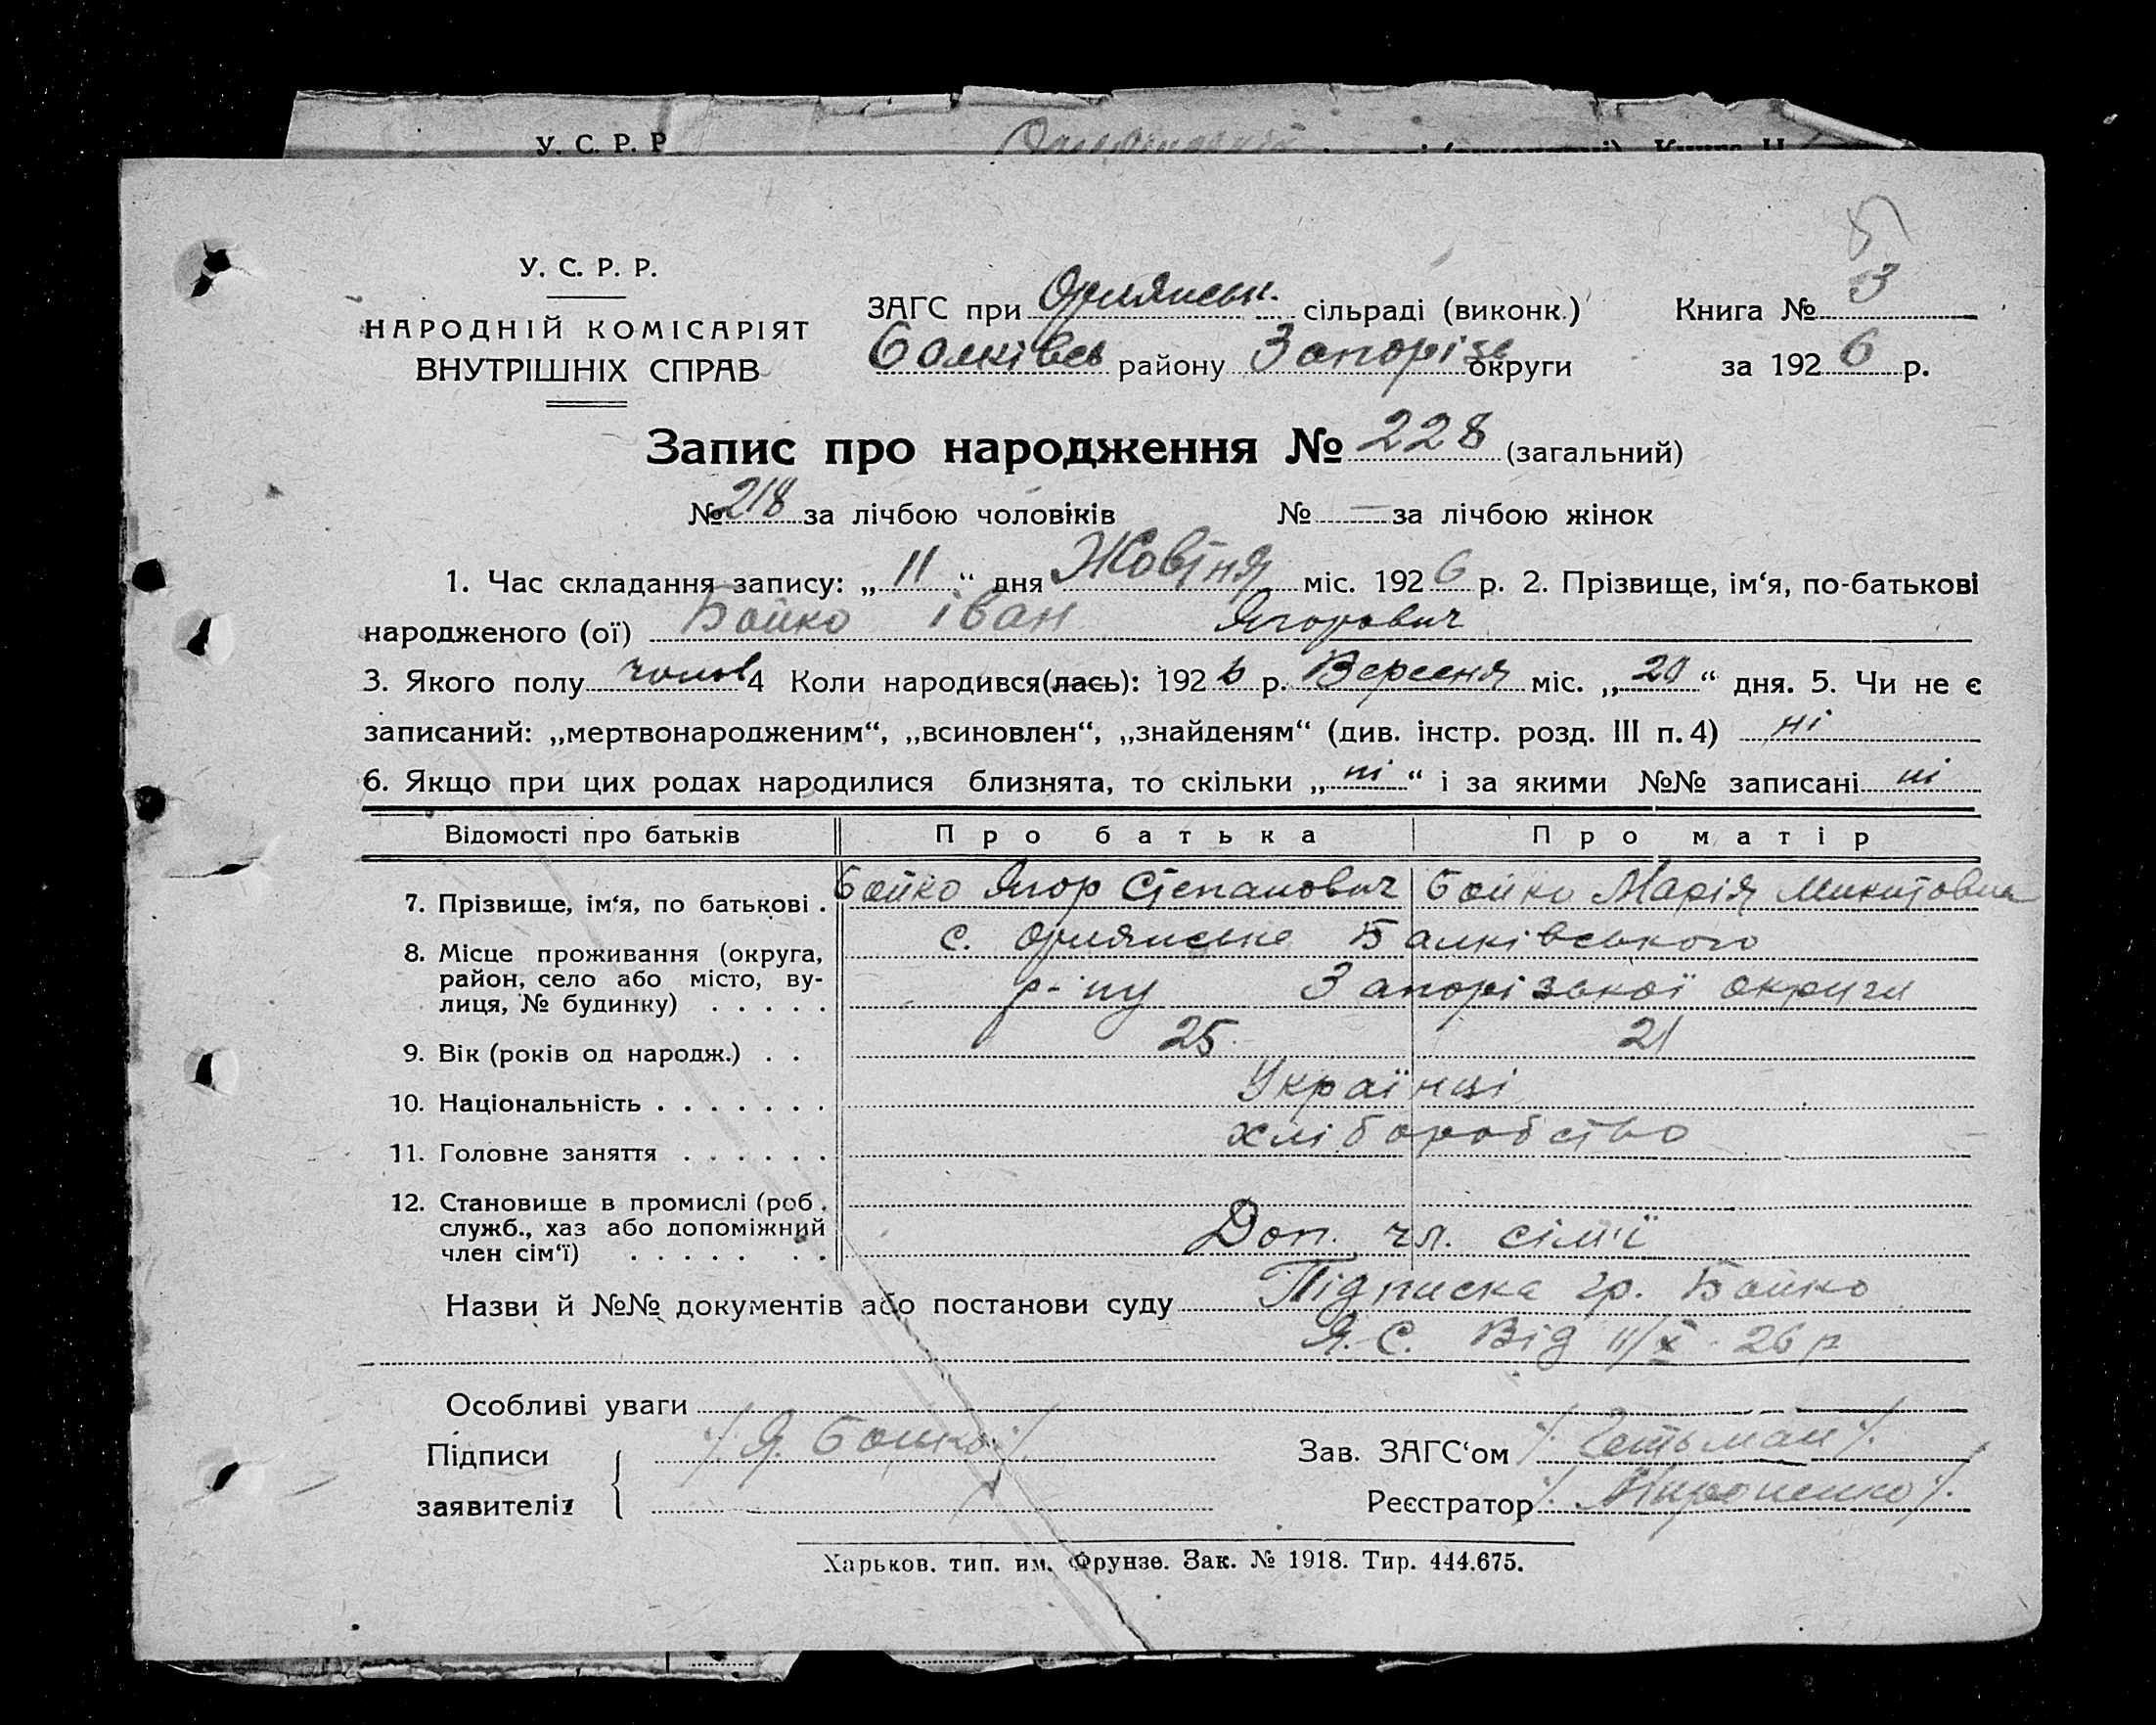 У. С. Р. Р
У. С. Р. Р.
НАРОДНІЙ КОМІСАРІЯТ
ВНУТРІШНІХ СПРАВ
ЗАГС при Орлянськ. сільраді (виконк.)
Балківсь району Запорізь округи
Книга № 3
за 1926 р.
Запис про народження № 228 (загальний)
№ 218 за лічбою чоловіків № — за лічбою жінок
1. Час складання запису: „11“ дня Жовтня міс. 1926 р. 2. Прізвище, ім‘я, по-батькові
народженого (ої) Бойко Іван Ягорович
3. Якого полу чолов 4 Коли народився(лась): 1926 р. Вересня міс. „20“ дня. 5. Чи не є
записаний: „мертвонародженим“, „всиновлен“, „знайденям“ (див. інстр. розд. III п. 4) ні
6. Якщо при цих родах народилися близнята, то скільки „ні“ і за якими №№ записані ні
Відомості про батьків Про батька Про матір
7. Прізвище, ім‘я, по батькові . Бойко Ягор Степанович Бойко Марія Микитовна
8. Місце проживання (округа, район, село або місто, вулиця, № будинку) . . . . . с. Орлянське Балківського
р-ну Запорізької округи
9. Вік (років од народж.) . . 25 21
10. Національність . . . . . . . Українці
11. Головне заняття . . . . . . хліборобство
12. Становище в промислі (роб. служб., хаз або допоміжний член сім‘ї) . . . . . . . Доп. чл. сім'ї
Назви й №№ документів або постанови суду Підписка гр. Бойко
Я. С. Від 11/X - 26 р
Особливі уваги
Підписи заявителів /Я. Бойко/
Зав. ЗАГС‘ом /Гетьман/.
Реєстратор /Мироненко/.
Харьков. тип. им. Фрунзе. Зак. № 1918. Тир. 444.675.